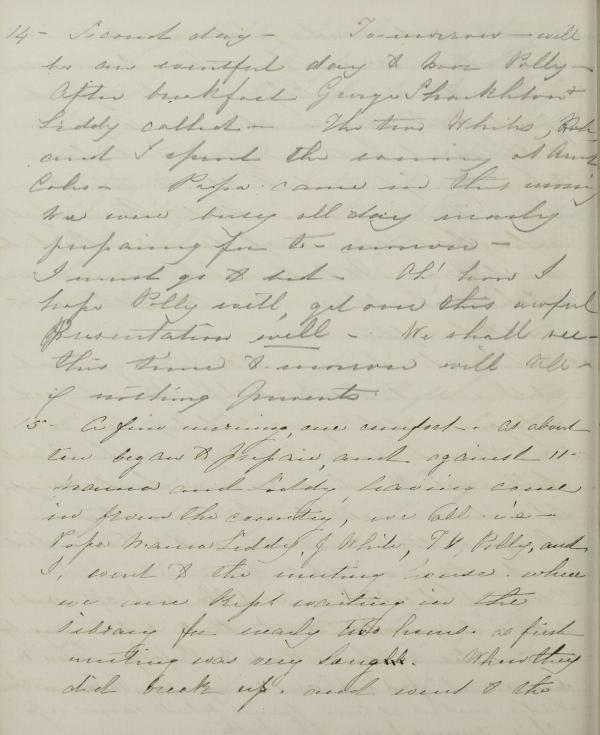 14 - Second day - To-morrow - will
be an eventful day to poor Polly -
After breakfast George Shackleton &
Liddy called - The two Whites,
and I spent the evening at Aunt
Papa came in this morning
We were busy all day nearly
preparing for to-morrow -
I must go to bed - Oh! how I
hope Polly will, get over this awful
Presentation well - We shall see -
this time to-morrow will tell -
if nothing prevents.
15 - A fine morning, one comfort - at about
ten began to prepare, and against 11 -
Mama and Liddy, having come
in from the country, we all i e -
Papa Mama Liddy, J White, T W, Polly, and
I, went to the meeting house. where
we were kept waiting in the
library for nearly two hours. as first
meeting was very long. When they
did break up. and went to the